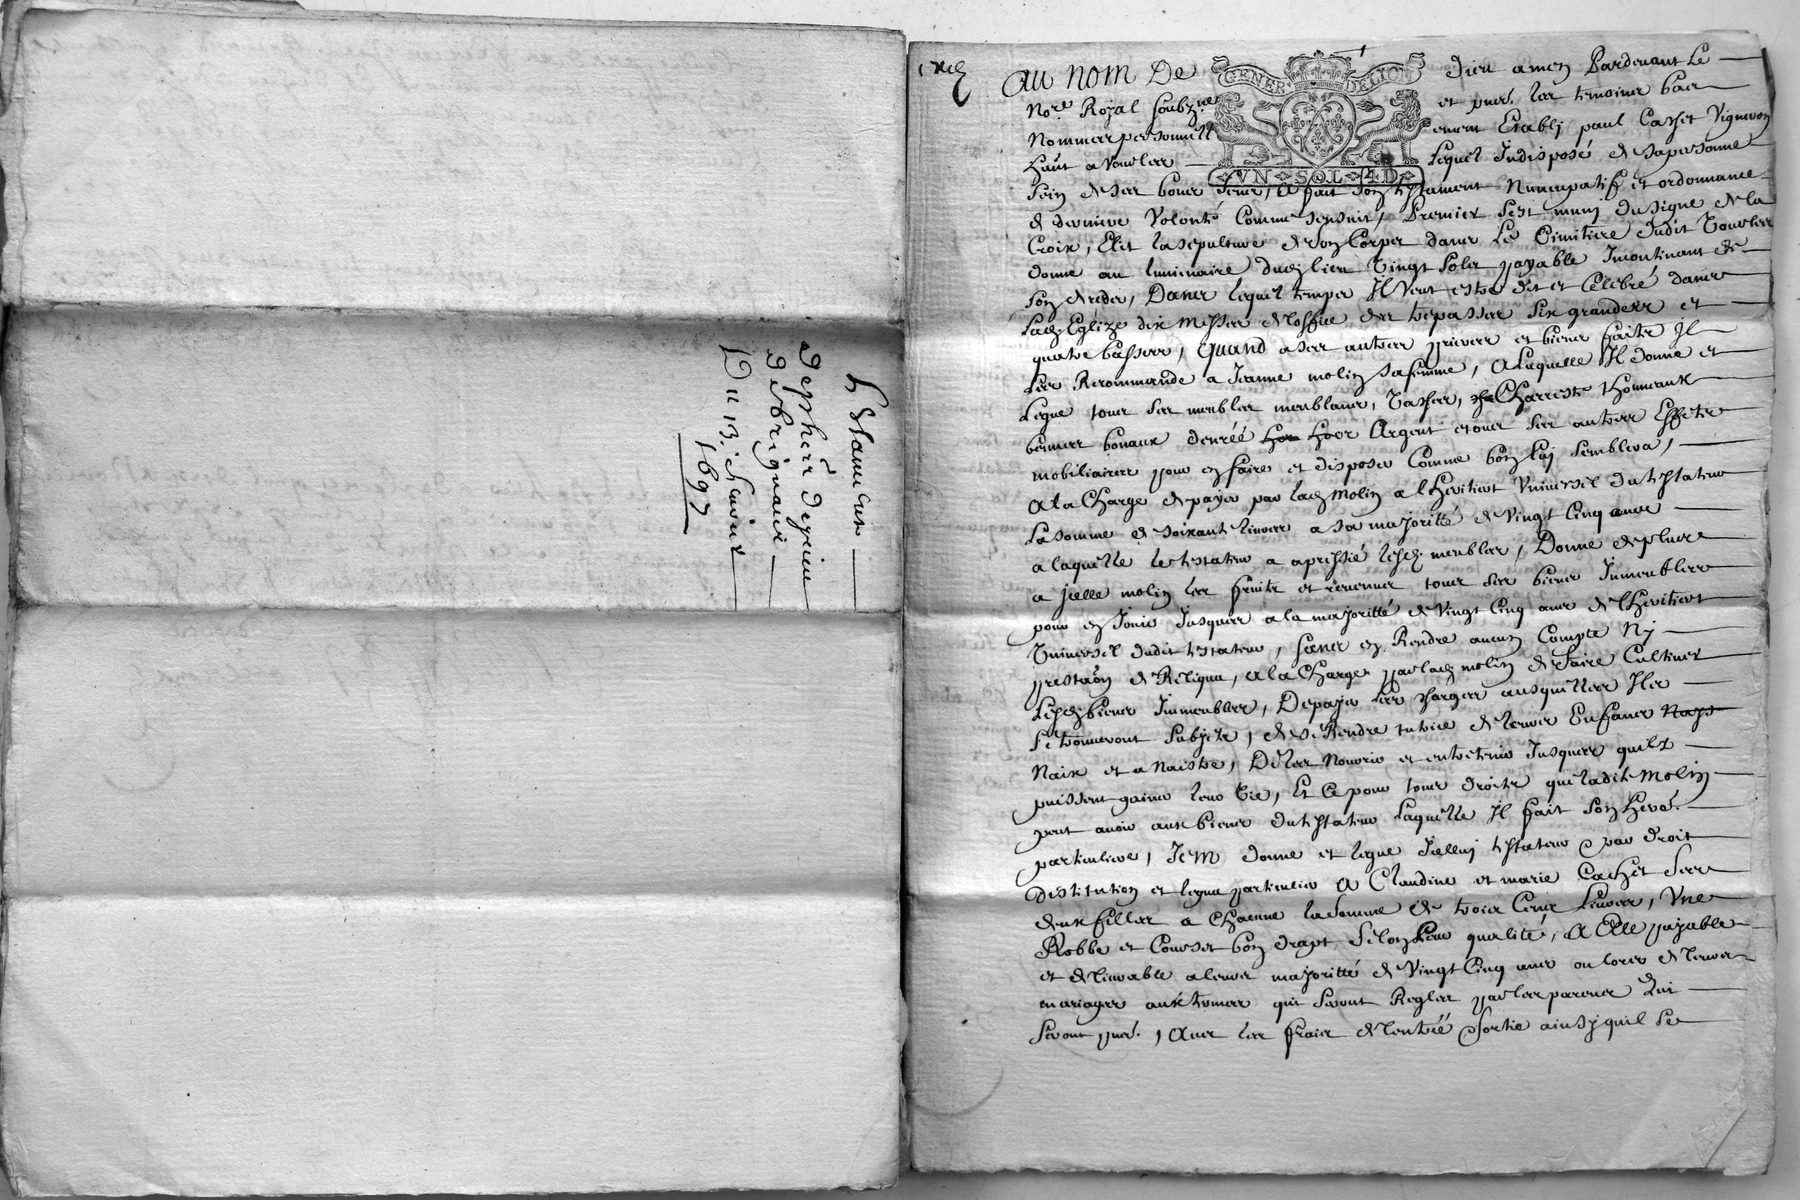 Du 13. feurier
1697
GENER. DE LION
VN·SOL·4D.
Au nom De Dieu amen Pardeuant Le
No.re Royal soubz.ne et pnts. les tesmoins bas
Nommes personnellement Estably paul Cachet Vigneron
hault a Vourles Lequel Indisposé de sa personne
sein de ses bons sens, a fait son testament Nuncupatif et ordonnance
de derniere Volonté Comme sensuit, Premier sest muny du signe de la
Croix, Elit la sepulture de son Corps dans Le Cimitiere dudit Vourles
donne au luminaire dud. lieu Vingt sols payable Incontinant
son deces, Dans lequel temps Il Veut estre dit et Celebré dans
Lad. Eglize dix Messes de loffice des trepasses six grandes et
quatre basses, Quand a ses autres prieres et biens faits Il
Les Recommande a Jeanne molin sa femme, A Laquelle Il donne et
Legue tous ses meubles meublans, Vasses, Charreste thonneaux
bennes bonaux denréé hoor Argent et tous ses autres Effets
mobiliaires pour en faire et disposer Comme bon luy semblera,
A la Charge de payer par lad. Molin a lheritier Vniuersel du testateur
La somme de soixante liures a sa majorité de Vingt Cinq ans
a laquelle le testateur a apretié lesd. meubles, Donne de plus
a jcelle molin les fruits et reuenus tous ses biens Immeubles
pour en Jouir Jusques a la majoritté de Vingt Cinq ans de lheritier
Vniuersel dudit testateur, sans en Rendre aucun Compte Ny
prestaõn de Reliqua, A la Charge par lad. molin de faire Cultiuer
Lesd. biens Immeubles, De payer les charges ausquelles Ils
se trouueront subjets, de se Rendre tutrice de leurs Enfans
Naix et a Naistre, De les Nourir et entretenir Jusques quilx
puissent gainer leur Vie, Et Ce pour tous droits que ladite Molin
peut auoir aux biens du testateur Laquelle Il fait son here.
particuliere, Item donne et legue Jcelluy testateur par droit
Destitution et legua particulier A Claudine et marie Cachet ses
deux filles a Chacune la somme de trois Cens Liures, Vne
Robbe et Corset bon drapt selon leur qualité, A Elle payable
et deliurable a leurs majoritté de Vingt Cinq ans ou lors de leurs
mariages aux termes qui seront Regles par les parens qui
seront pnts., Auec les frais de lentréé sortie ainsy quil se